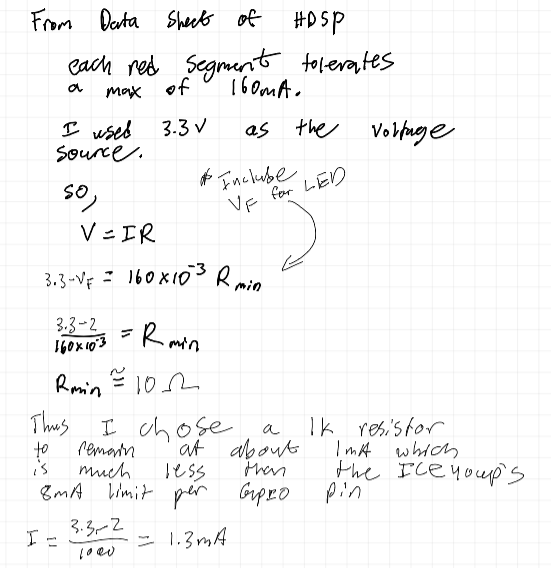 From Data Sheet of HDSP
each red segment tolerates
a max of 160mA.
I used 3.3V as the voltage
source.
so,
* Include
VF for LED
V = IR
3.3-VF = 160x10^-3 Rmin
3.3-2 / 160x10^-3 = Rmin
Rmin ≅ 10 Ω
Thus I chose a 1k resistor
to remain at about 1mA which
is much less then the ICE40up's
8mA limit per GPIO pin
I = 3.3-2 / 1000 = 1.3mA